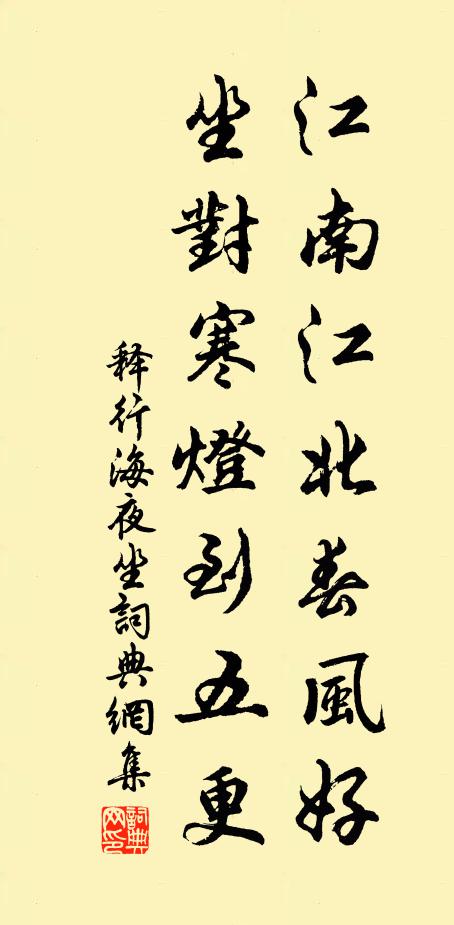 江南江北春風好
坐對寒燈到五更
释行海夜坐詞典網集
詞典網印